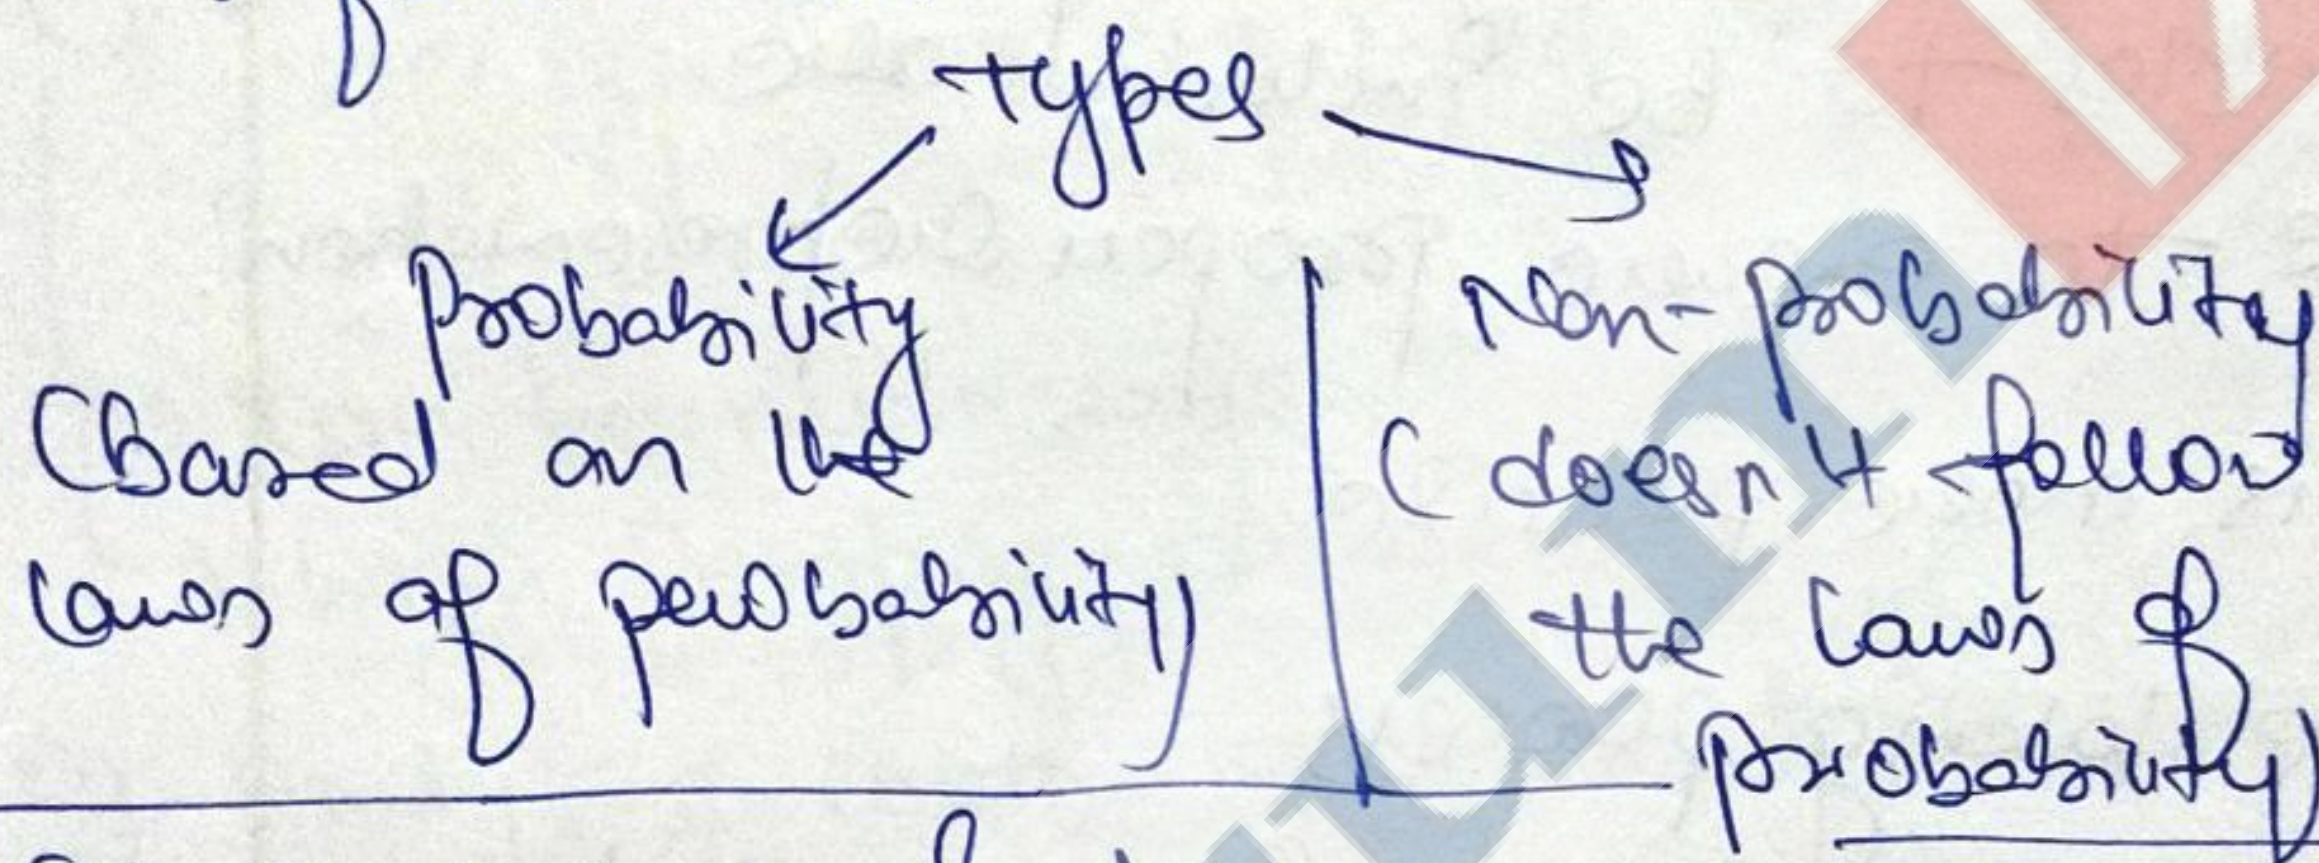 types
probability
(based on the
laws of probability)
Non-probability
(doesn't follow
the laws of
probability)